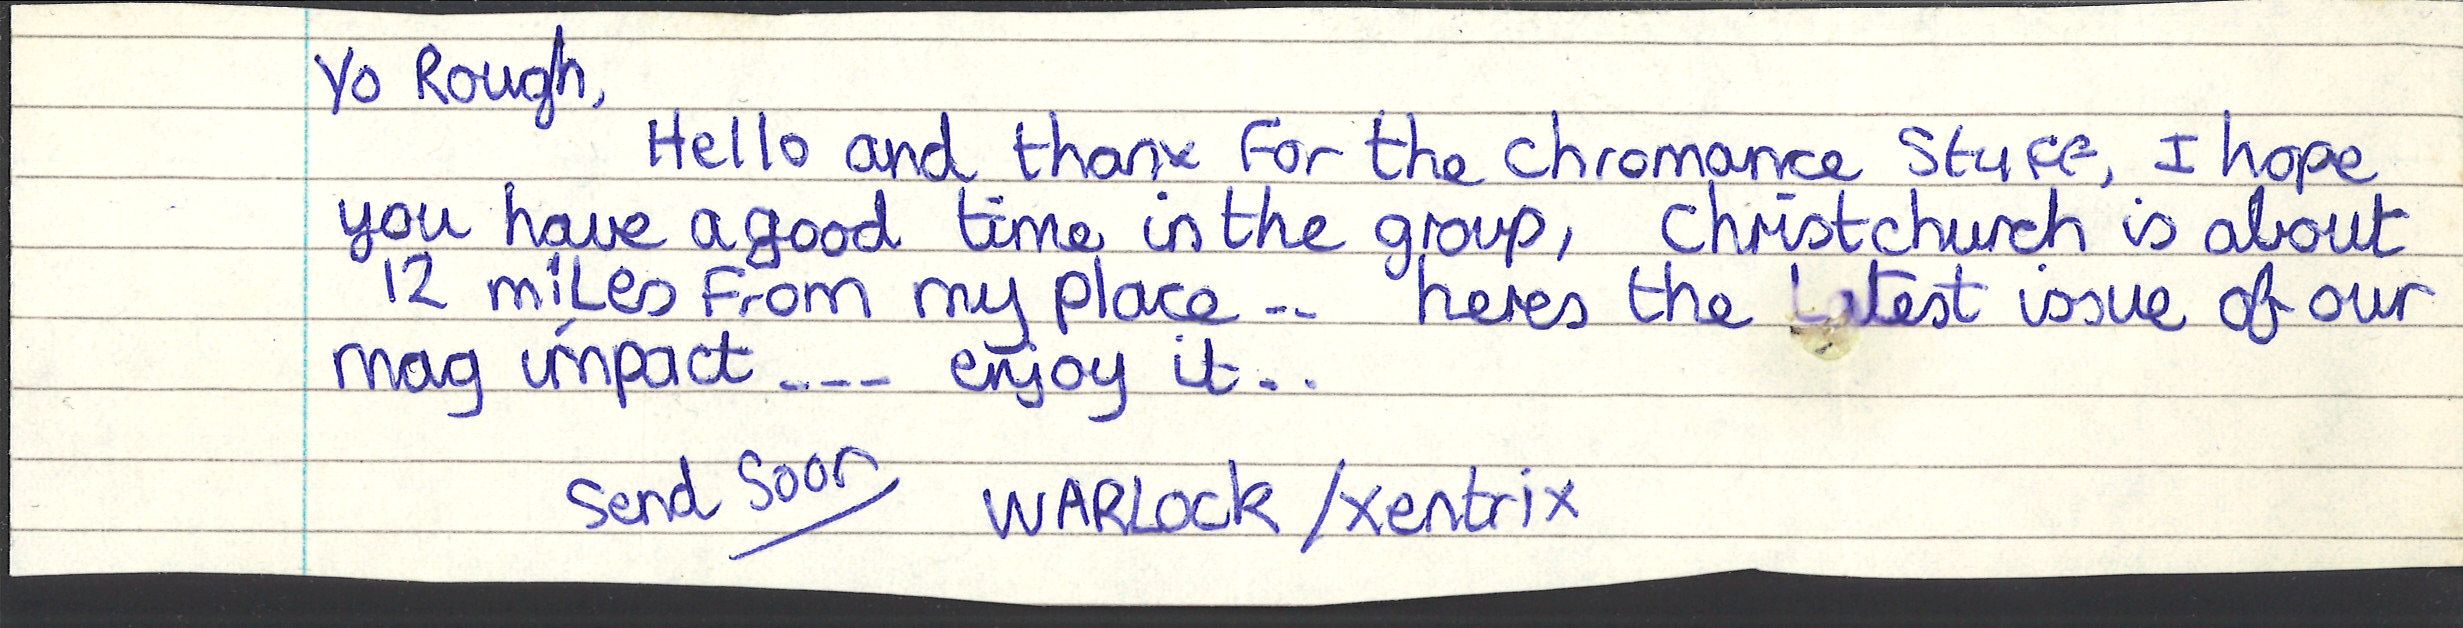 Yo Rough,
Hello and thanx For the Chromance Stuff, I hope
you have a good time in the group, Christchurch is about
12 miles From my place -- heres the Latest issue of our
mag impact --- enjoy it..
Send Soon WARLOCK /Xentrix